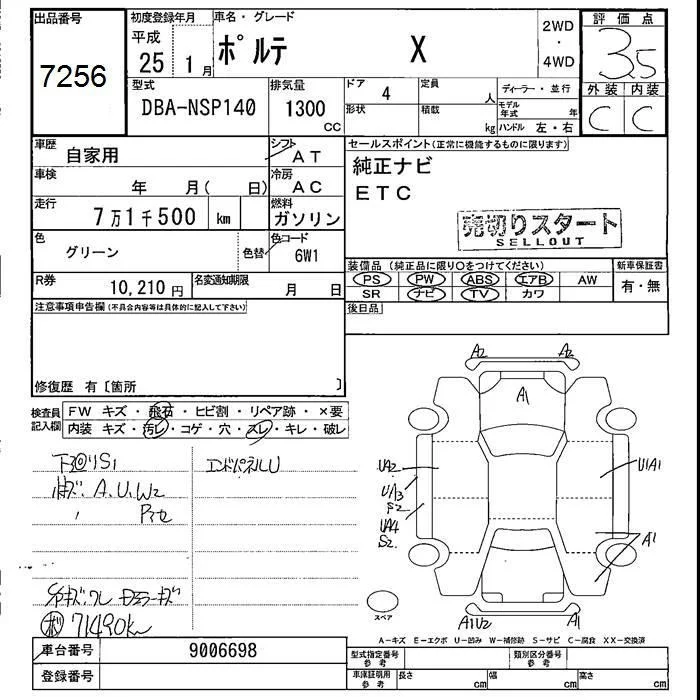 出品番号
7256
初度登録年月
平成
25 1月
車名・グレード
ポルテ X
2WD
・
4WD
評価点
3.5
外装 内装
C C
型式
DBA-NSP140
排気量
1300
CC
ドア
4
定員
人
形状
積載
kg
ディーラー・並行
モデル年式 年
ハンドル 左・右
車歴
自家用
シフト
AT
車検
年 月( 日)
冷房
AC
走行
7万1千500 km
燃料
ガソリン
色
グリーン
色替
色コード
6W1
R券
10,210円
名変通知期限
月 日
セールスポイント(正常に機能するものに限ります)
純正ナビ
ETC
売切りスタート
SELLOUT
装備品 (純正品に限り○をつけてください)
PS PW ABS エアB AW
SR ナビ TV カワ
新車保証書
有・無
後日品
注意事項申告欄(不具合内容等は具体的に記入して下さい)
修復歴 有〔箇所 〕
検査員
記入欄
FW キズ・飛石・ヒビ割・リペア跡・×要
内装 キズ・汚レ・コゲ・穴・スレ・キレ・破レ
下廻りS1
エンドパネルU
A.U.W2
71490km
A2 A2
A1
UA2
UA3
S2
UA4
S2.
U1A1
A1
A1U2 A1
スペア
A-キズ E-エクボ U-凹み W-補修跡 S-サビ C-腐食 XX-交換済
車台番号
9006698
登録番号
型式指定番号
参考
類別区分番号
参考
車庫証明用
参考
長さ cm
幅 cm
高さ cm